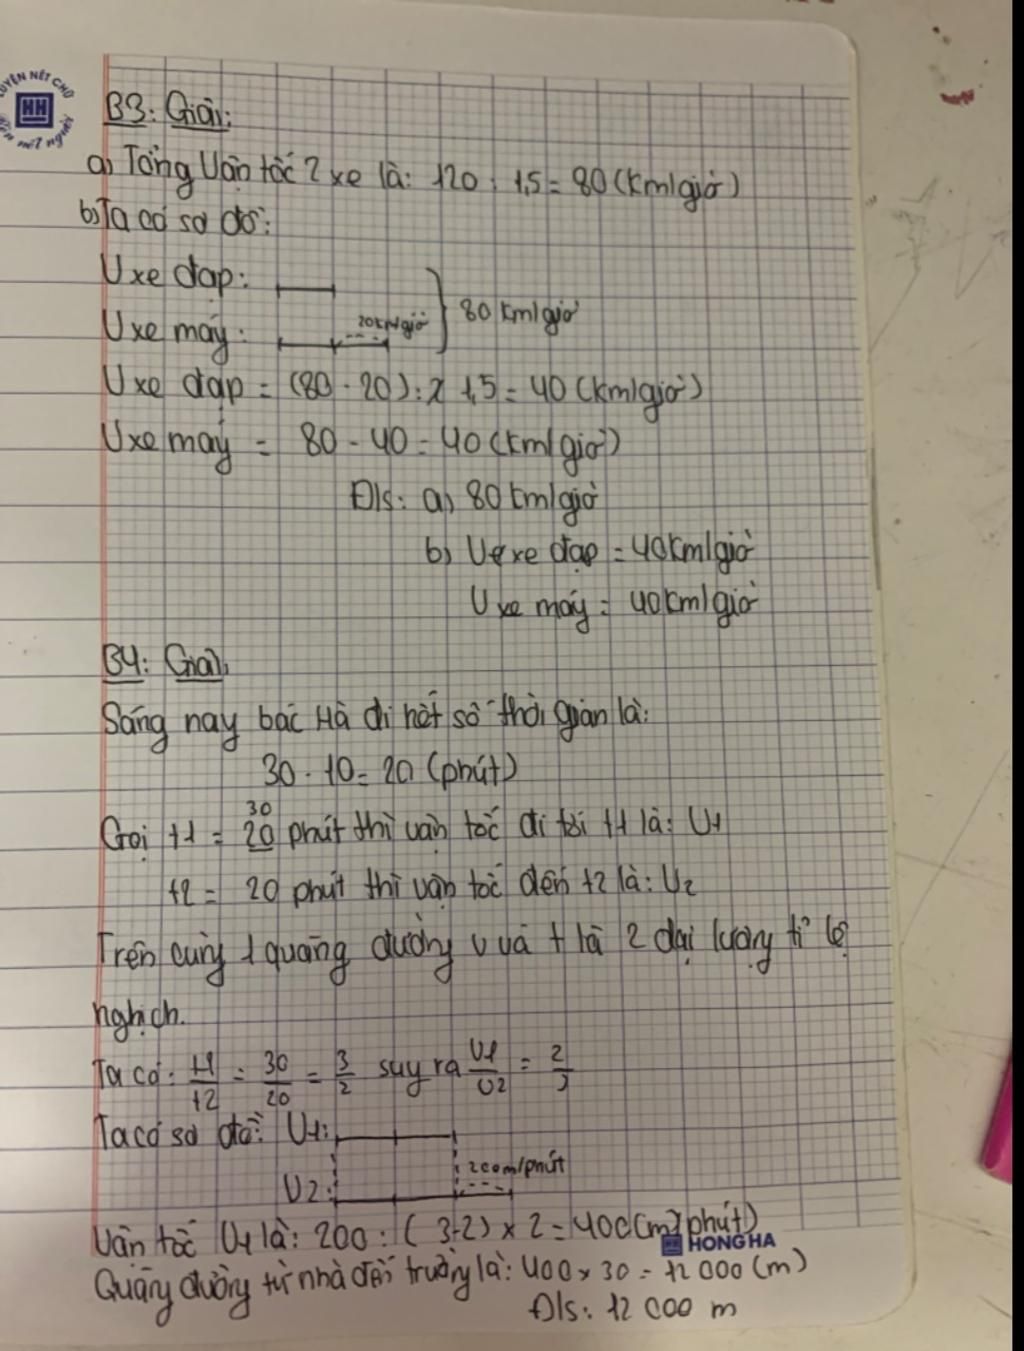 LUYỆN NÉT CHỮ
HH
nết người
B3: Giải:
a) Tổng vận tốc 2 xe là: 120 : 1,5 = 80 (km/giờ)
b) Ta có sơ đồ:
V xe đạp:
V xe máy:
20km/giờ
80 km/giờ
V xe đạp = (80 - 20) : 2 x 1,5 = 40 (km/giờ)
V xe máy = 80 - 40 = 40 (km/giờ)
Đ/s: a) 80 km/giờ
b) V xe đạp = 40km/giờ
V xe máy = 40km/giờ
B4: Giải:
Sáng nay bác Hà đi hết số thời gian là:
30 - 10 = 20 (phút)
30
Gọi t1 = 20 phút thì vận tốc đi tới t1 là: V1
t2 = 20 phút thì vận tốc đến t2 là: V2
Trên cùng 1 quãng đường v và t là 2 đại lượng tỉ lệ
nghịch.
Ta có: t1/t2 = 30/20 = 3/2 suy ra V1/V2 = 2/3
Ta có sơ đồ: V1:
200m/phút
V2:
Vận tốc V1 là: 200 : (3-2) x 2 = 400 (m/phút)
HONG HA
Quãng đường từ nhà đến trường là: 400 x 30 = 12 000 (m)
Đ/s: 12 000 m